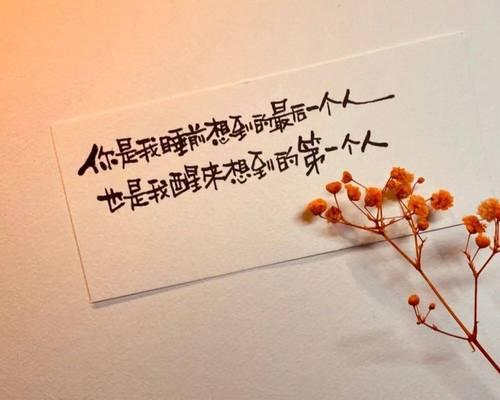 你是我睡前想到的最后一个人
也是我醒来想到的第一个人